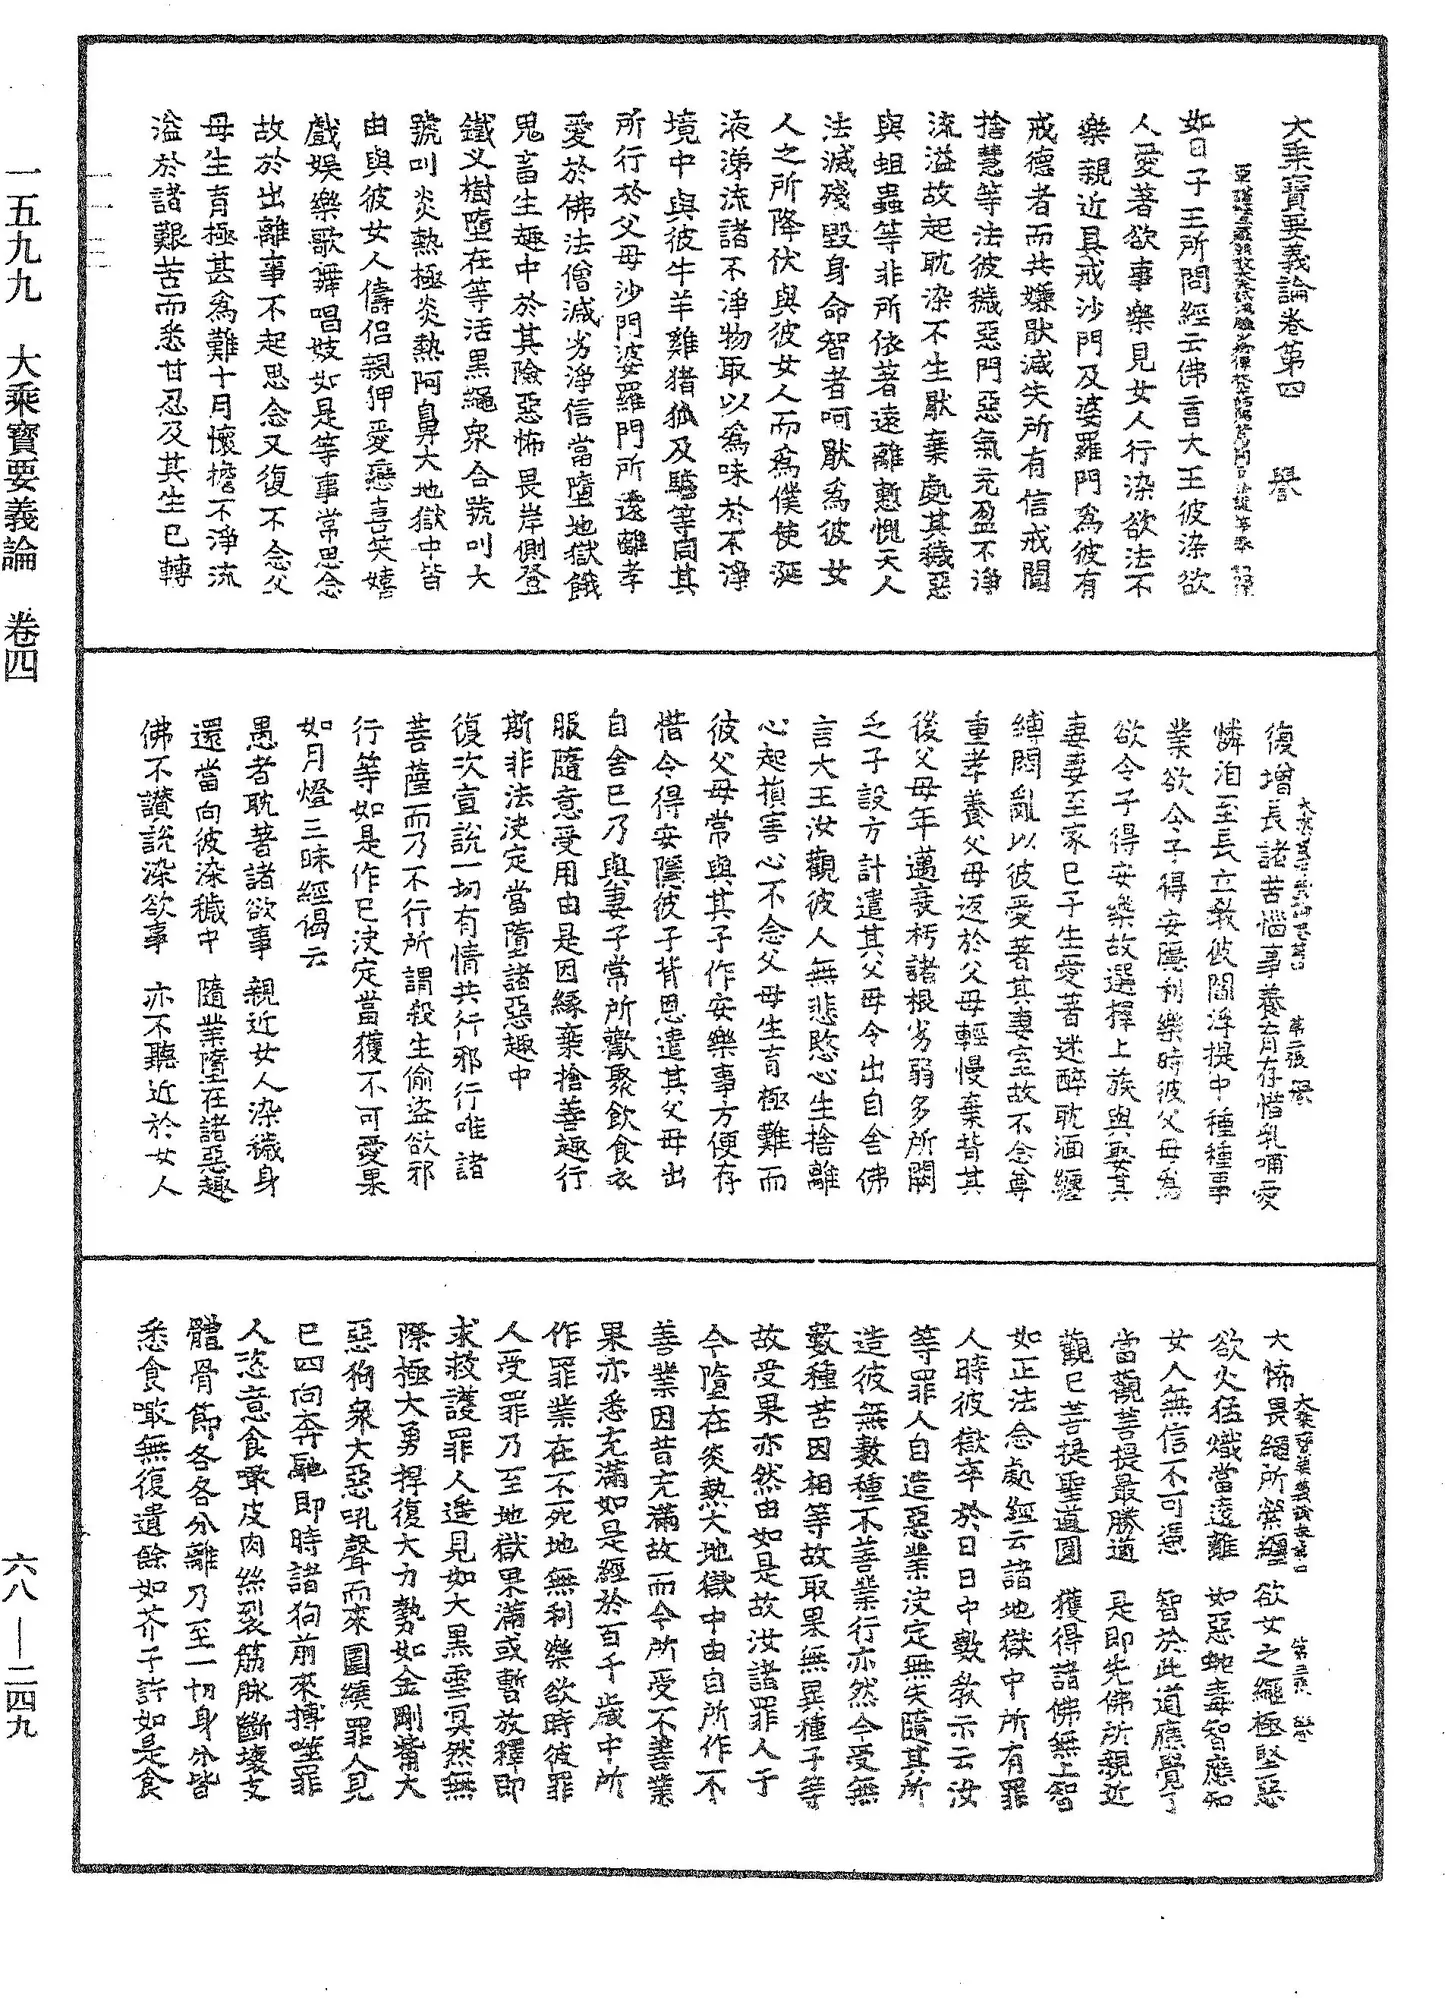 大乘寶要義論卷第四　譽
如日子王所問經云佛言大王彼染欲
人愛著欲事樂見女人行染欲法不
樂親近具戒沙門及婆羅門為彼有
戒德者而共嫌猒減失所有信戒聞
捨慧等法彼穢惡門惡氣充盈不淨
流溢故起耽染不生猒棄處其穢惡
與蛆蟲等非所依著遠離慙愧天人
法滅殘毀身命智者呵猒為彼女
人之所降伏與彼女人而為僕使涎
液涕流諸不淨物取以為味於不淨
境中與彼牛羊雞猪狐及驢等同其
所行於父母沙門婆羅門所遠離孝
愛於佛法僧減劣淨信當墮地獄餓
鬼畜生趣中於其險惡怖畏岸側登
鐵叉樹墮在等活黑繩衆合號叫大
號叫炎熱極炎熱阿鼻大地獄中皆
由與彼女人儔侶親狎愛戀喜笑嬉
戲娛樂歌舞唱妓如是等事常思念
故於出離事不起思念又復不念父
母生育極甚為難十月懷擔不淨流
溢於諸艱苦而悉甘忍及其生已轉
復增長諸苦惱事養育存惜乳哺愛
憐洎至長立教彼閻浮提中種種事
業欲令子得安隱利樂時彼父母為
欲令子得安樂故選擇上族與娶其
妻妻至家已子生愛著迷醉耽湎纏
縛悶亂以彼愛著其妻室故不念尊
重孝養父母返於父母輕慢棄背其
後父母年邁衰朽諸根劣弱多所闕
乏子設方計遣其父母令出自舍佛
言大王汝觀彼人無悲愍心生捨離
心起損害心不念父母生育極難而
彼父母常與其子作安樂事方便存
惜令得安隱彼子背恩遣其父母出
自舍已乃與妻子常所歡聚飲食衣
服隨意受用由是因緣棄捨善趣行
斯非法決定當墮諸惡趣中
復次宣說一切有情共行邪行唯諸
菩薩而乃不行所謂殺生偷盜欲邪
行等如是作已決定當獲不可愛果
如月燈三昧經偈云
愚者耽著諸欲事　親近女人染穢身
還當向彼染穢中　隨業墮在諸惡趣
佛不讚說染欲事　亦不聽近於女人
大怖畏繩所縈纏　欲女之繩極堅惡
欲火猛熾當遠離　如惡蚖毒智應知
女人無信不可憑　智於此道應覺了
當觀菩提最勝道　是即先佛所親近
觀已菩提聖道圓　獲得諸佛無上智
如正法念處經云諸地獄中所有罪
人時彼獄卒於日日中數教示云汝
等罪人自造惡業決定無失隨其所
造彼無數種不善業行亦然今受無
數種苦因相等故取果無異種子等
故受果亦然由如是故汝諸罪人于
今墮在炎熱大地獄中由自所作不
善業因昔充滿故而今所受不善業
果亦悉充滿如是經於百千歲中所
作罪業在不死地無利樂欲時彼罪
人受罪乃至地獄果滿或暫放釋即
求救護罪人遙見如大黑雲冥然無
際極大勇捍復大力勢如金剛觜大
惡狗衆大惡吼聲而來圍繞罪人見
已四向奔馳即時諸狗前來搏噬罪
人恣意食噉皮肉絲裂筋脉斷壞支
體骨節各各分離乃至一切身分皆
悉食噉無復遺餘如芥子許如是食
一五九九　大乘寶要義論　卷四
六八——二四九